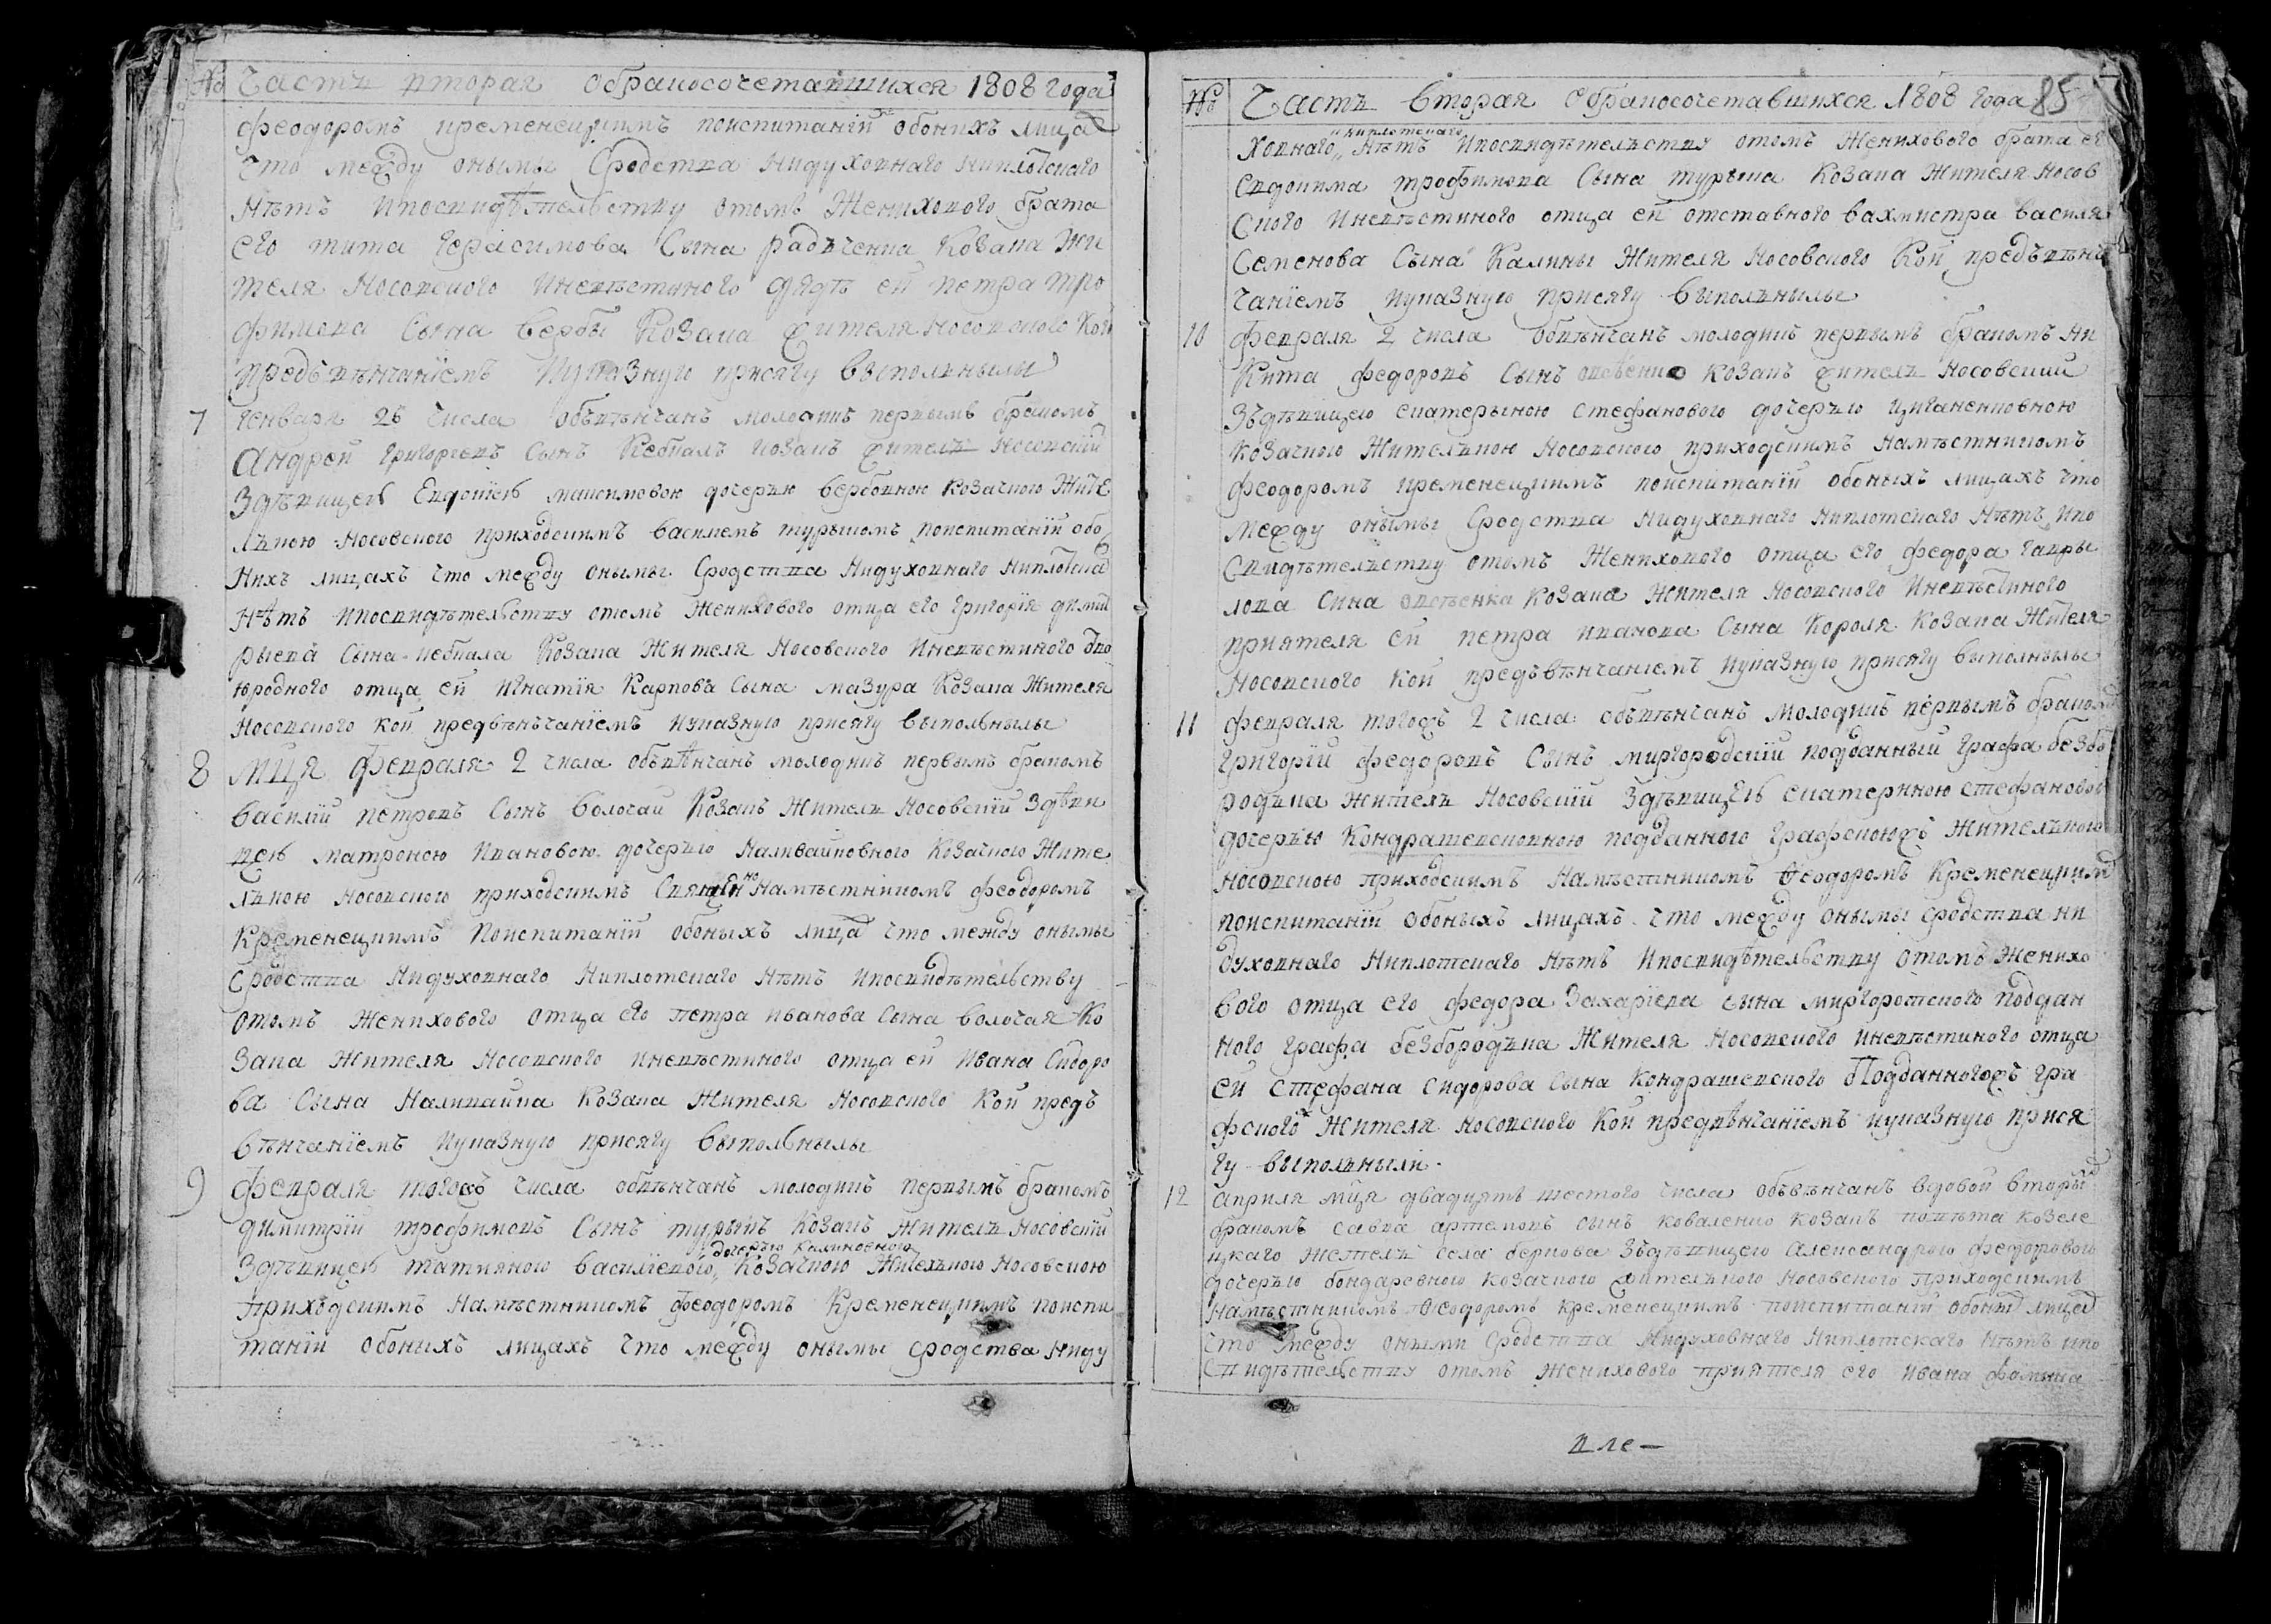 № Часть вторая обракосочетавшихся 1808 года
феодоромъ кременецкимъ поиспитаніи обоихъ лицахъ
что между онымы Сродства Нидуховнаго Ниплотскаго
Нѣтъ Ипосвидѣтельству отомъ Женихового брата
его тита Герасимова Сына радѣченка Козака Жи
теля Носовского Иневѣстиного дядѣ ей петра тро
фимова Сына вербы Козака жителя Носовского Кои
предъ вѣнчаніемъ Иуказную присягу выполнылы
7 Генваря 26 числа объвѣнчанъ молодикъ первымъ бракомъ
Андрей григориевъ Сынъ Кебкалъ козакъ житель Носовскій
Здѣвицею Евдокіею максимовою дочерью вербовною Козачкою Жите
лькою Носовского приходскимъ василемъ турышомъ поиспитаніи обо
Нихъ лицахъ что между онымы Сродства Нидуховнаго Ниплотска
Нѣтъ Ипосвидѣтельству отомъ Женихового отца его григорія димит
рыева Сына кебкала Козака Жителя Носовского Иневѣстиного дво
юродного отца ей игнатія Карпова Сына мазура Козака Жителя
Носовского кои предвѣнъчаніемъ Иуказную присягу выполнылы
8 Мця февраля 2 числа объвѣнчанъ молодикъ первымъ бракомъ
василій петровъ Сынъ волочай Козакъ Житель Носовскій Здѣви
цею матроною Ивановою дочерью Наливайковного Козачкою Жите
лькою Носовского приходскимъ Священно Намѣстникомъ феодоромъ
Кременецкимъ Поиспитаніи обоныхъ лица что между онымы
Сродства Нидуховнаго Ниплотскаго Нѣтъ Ипосвидѣтельству
отомъ Женихового отца его петра иванова Сына волочая Ко
зака Жителя Носовского Иневѣстиного отца ей Ивана Сидоро
ва Сына Наливайка Козака Жителя Носовского Кои предъ
вѣнчаніемъ Иуказную присягу выполнылы
9 февраля тогожъ числа обвѣнчанъ молодикъ первымъ бракомъ
димитрій трофимовъ Сынъ турышъ козакъ Житель Носовскій
Здѣвицею татияною василіевого дочерью Калиновного Козачкою Жителькою Носовскою
приходскимъ Намѣстникомъ феодоромъ Кременецкимъ поиспи
таніи обоныхъ лицахъ что между онымы сродства Ниду
№ Часть вторая обракосочетавшихся 1808 года 85
Ховнаго ниплотскаго Нѣтъ Ипосвидѣтельству отомъ Женихового брата его
Евдокима трофимова Сына турыша Козака Жителя Носов
Ского Иневѣстиного отца ей отставного вахмистра василя
Семенова Сына Калины Жителя Носовского Кои предъвѣнъ
чаніемъ Иуказную присягу выполнылы
10 февраля 2 числа обвѣнчанъ молодикъ первымъ бракомъ Ни
Кита федоровъ Сынъ козакъ житель Носовскій
Зъдѣвицею екатерыною стефанового дочерью Циганенковною
Козачкою Жителькою Носовского приходскимъ Намѣстникомъ
феодоромъ кременецкимъ поиспитаніи обоныхъ лицахъ что
между онымы Сродства Нидуховнаго Ниплотскаго Нѣтъ Ипо
Свидѣтельству отомъ Женихового отца его федора гавры
лова Сина Козака Жителя Носовского Иневѣстиного
приятеля ей петра иванова Сына Короля Козака Жителя
Носовского кои предъвѣнчаніемъ Иуказную присягу выполнылы
11 февраля тогожъ 2 числа объвѣнчанъ молодикъ первымъ браком
григорій федоровъ Сынъ миргородскій подданный графа безбо
родька житель Носовскій Здѣвицею екатериною стефановою
дочерью Кондрашевсковною подданного графскоюжъ Жителькою
Носовскою приходскимъ Намѣстникомъ Феодоромъ Кременецким
поиспитаніи обоныхъ лицахъ что между онымы сродства ни
духовнаго Ниплотскаго Нѣтъ Ипосвидѣтельству отомъ Женихо
вого отца его федора Захаріева сына миргоротского поддан
ного графа безбородька Жителя Носовского иневѣстиного отца
ей стефана сидорова сына Кондрашевского Подданногожъ гра
фского Жителя Носовского Кои предвѣнчаніемъ иуказную прися
гу выполныли.
12 априля мця двадцять шестого числа объвѣнчанъ вдовой вторы
бракомъ савка артемовъ сынъ коваленко козакъ повѣта козеле
цкаго жетель села беркова Зъдѣвицею Александрою федорового
дочерью бондаревного козачкою жителькою Носовского приходскимъ
Намѣстникомъ Феодоромъ кременецкимъ поиспитаніи обоних лицах
что между оними Сродства Нидуховнаго Ниплотскаго Нѣтъ ипо
Свидѣтельству отомъ Женихового приятеля его ивана фомича
вле-